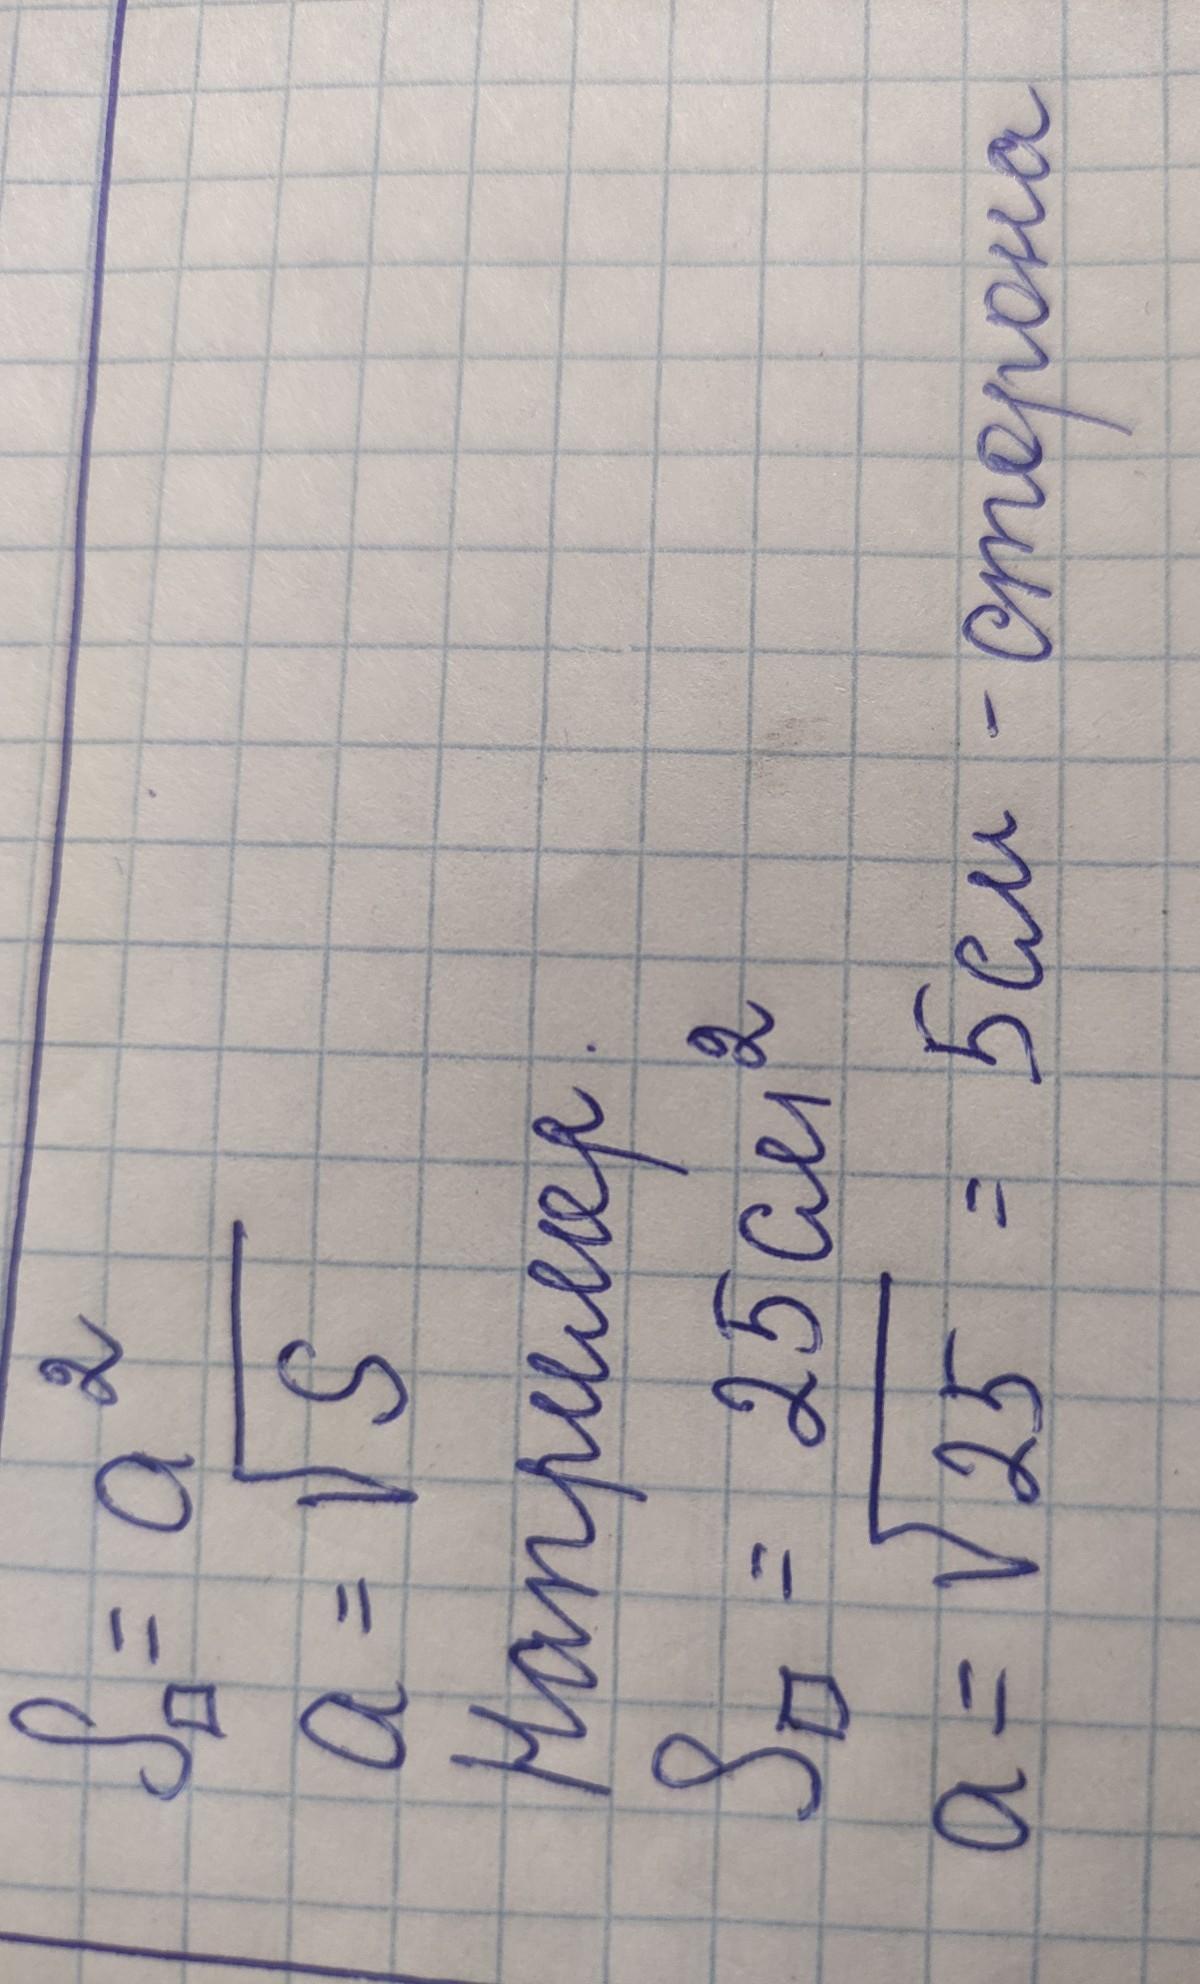 S□ = a²
a = √S
Например.
S□ = 25см²
a = √25 = 5см - сторона